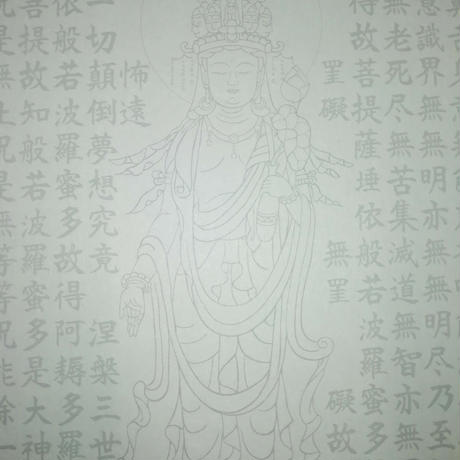 意識界無無明亦無無明尽乃至
無老死尽無苦集滅道無智亦無
得故菩提薩埵依般若波羅蜜多
罣礙無罣礙故
怖遠
一切顛倒夢想究竟涅槃三世
依般若波羅蜜多故得阿耨多羅
菩提故知般若波羅蜜多是大神
是無上呪是無等等呪能除一